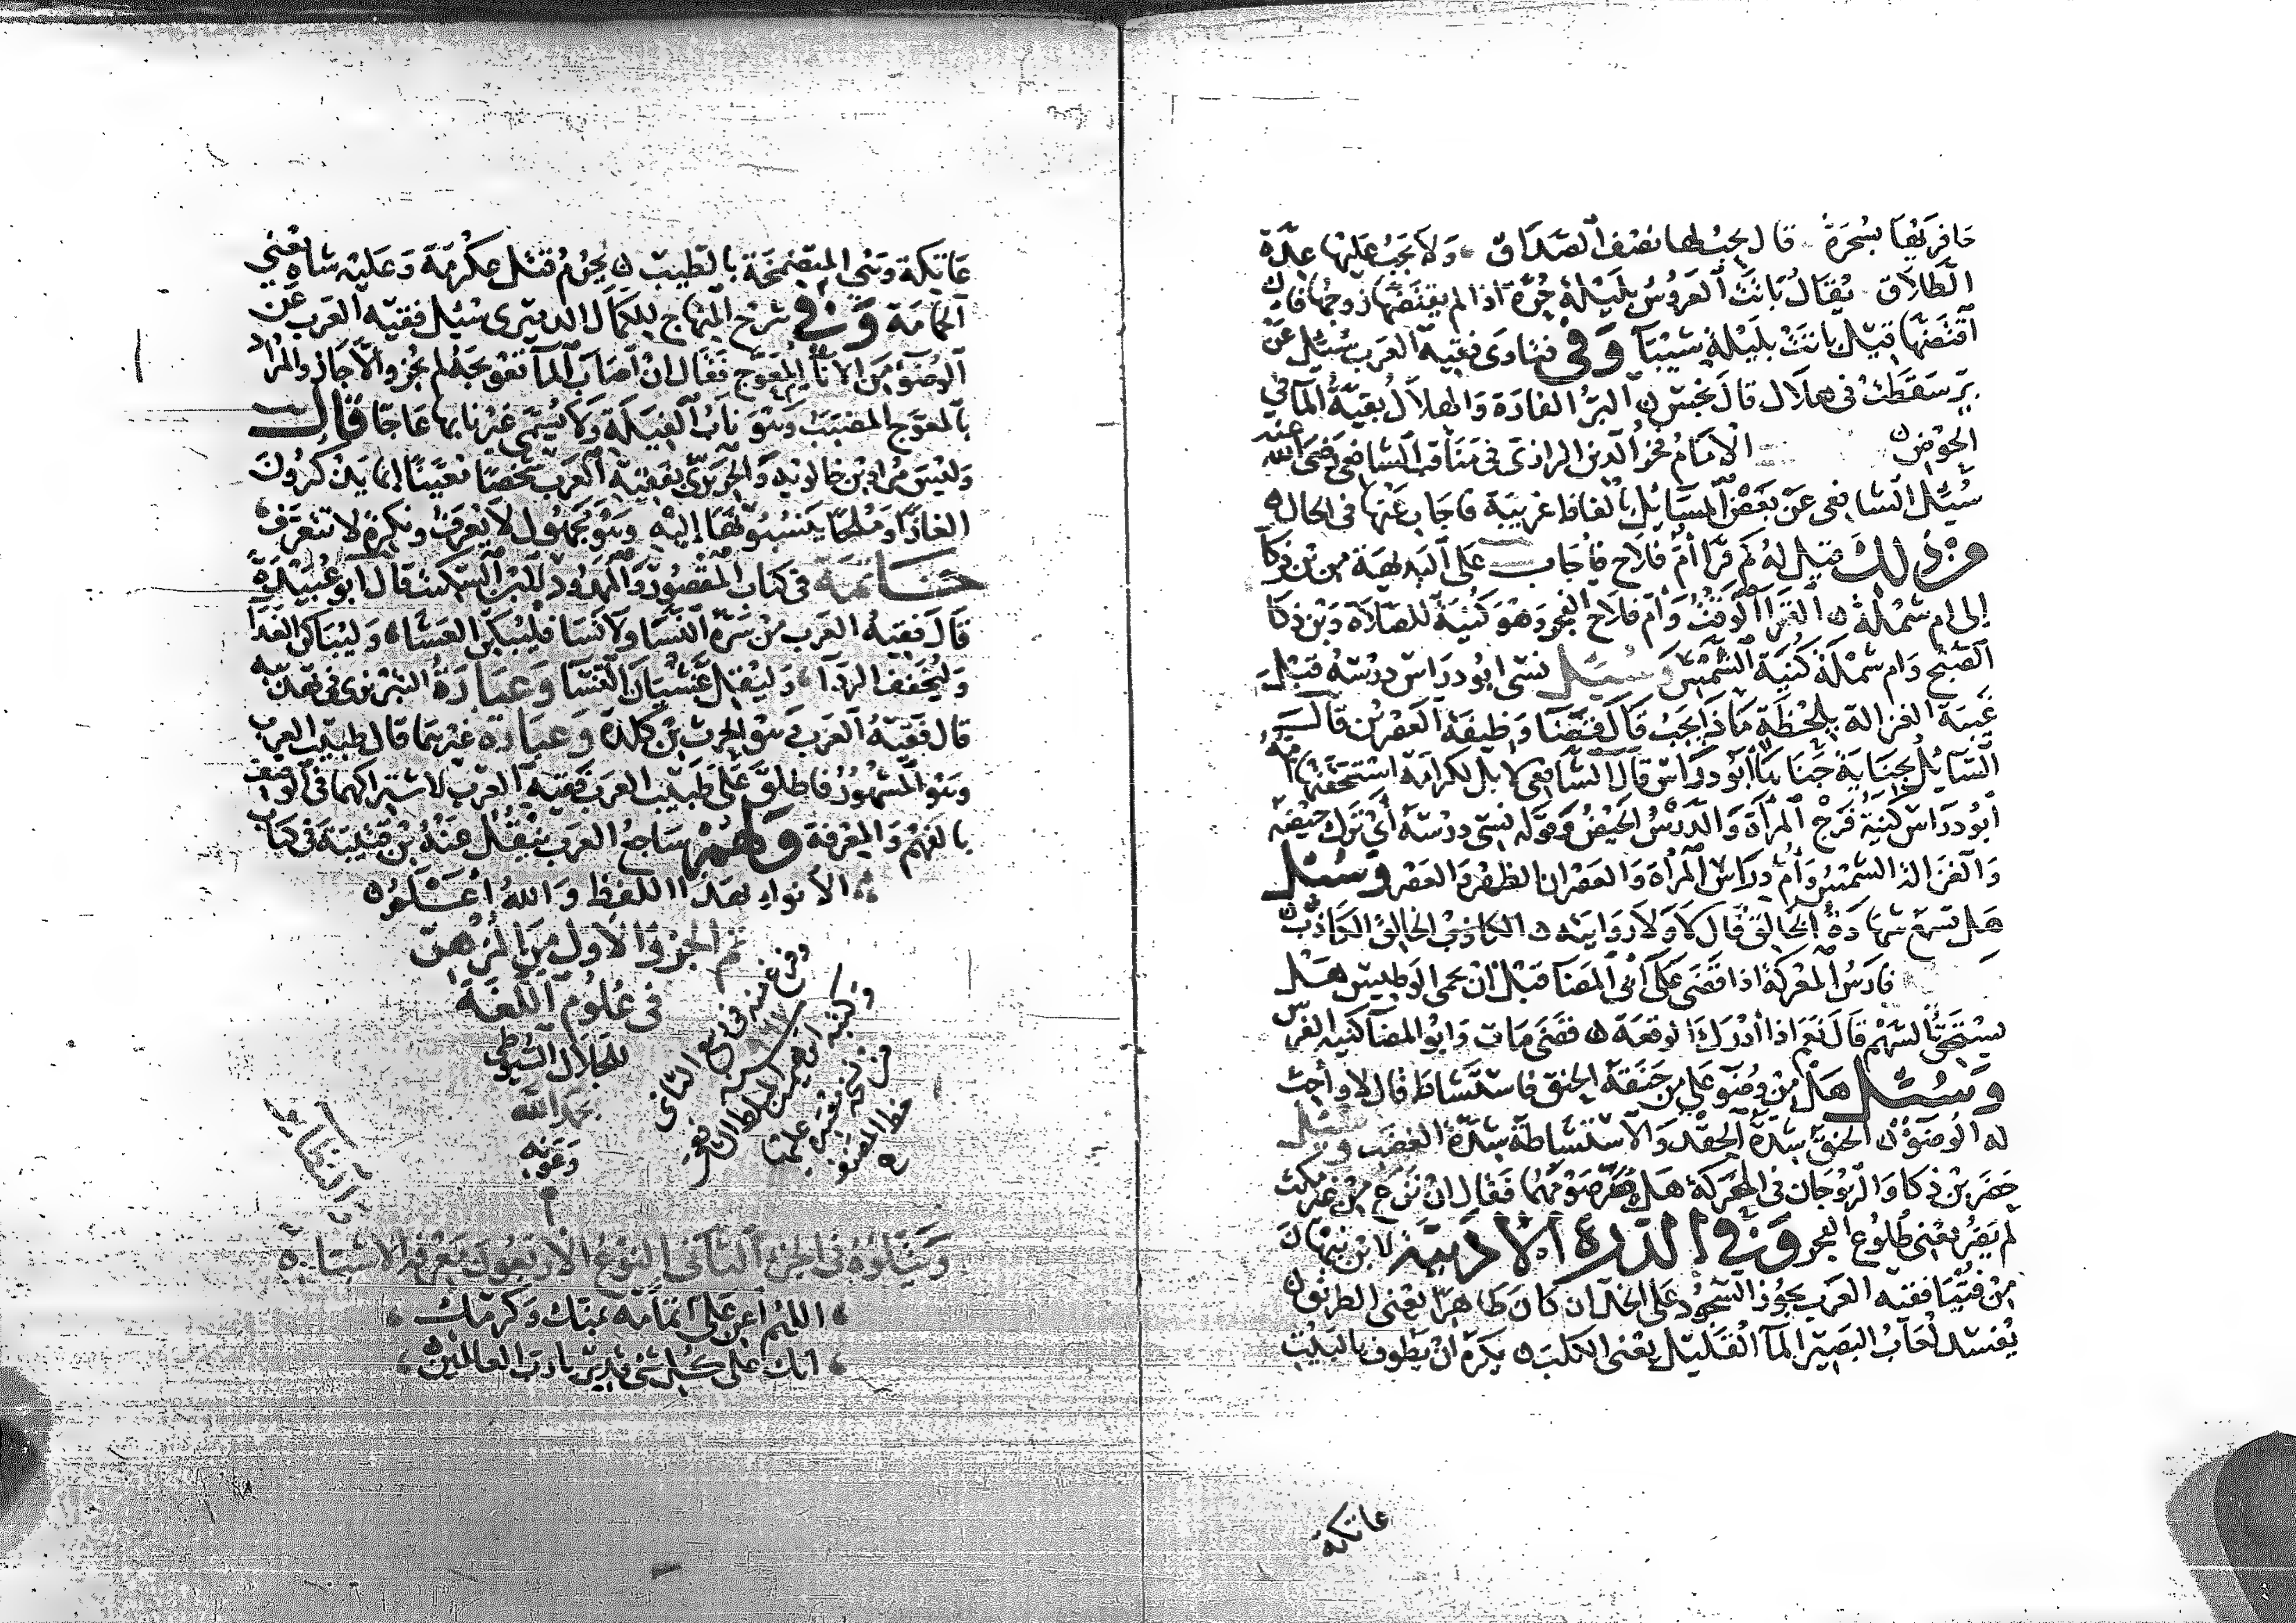 حافر يقيا بسحرة قال يجب لها نصف الصداق ولا يجب عليها عدة
الطلاق يقال باتت العروس بليلة حرة اذا لم يفتضها زوجها فان
افتضها قيل باتت بليلة شيبا وفي فتاوى فقيه العرب سئل عن
بير سقطت في هلال قال نجس البئر الفارة والهلال بقية الما في
الحوض الامام فخر الدين الرازي في مناقب الشافعي رضي الله عنه
سئل الشافعي عن بعض المسائل بالفاظ غريبة فاجاب عنها في الحال
من ذلك قيل له كم قرا ام فلاح فاجاب على البديهة من بن ذكا
الى ام شملة القرا الوقت وام فلاح الفجر وهو كنية للصلاة وبن ذكا
الصبح وام شملة كنية الشمس وسئل نسي ابو دراس درسه قبل
غيبة الغزالة بلحظة ماذا يجب قال قضا وظيفة العصرين قال
السائل بجناية جناها ابو دراس قال الشافعي لا بل لكرامة استحقتها امه
ابو دراس كنية فرج المراة والدرس الحيض وقوله نسي درسه أي ترك حيضه
والغزالة الشمس وأم دراس المراة والعصران الظهر والعصر وسئل
هل تسمع شهادة الخالق قال لا ولا روايته الخالق الكاذب
فارس المعركة اذا قضى على ابي المضا قبل ان يحمي الوطيس هل
يستحق السهم قال نعم اذا ادرك الوقعة قضى مات وابو المضا كنية الفرس
وسئل هل من وضوء على من حنقه الحنق فاستشاط قال لا وأحب
له الوضوء الحنق شدة الحقد والاستشاطة شدة الغضب وسئل
حضر بن ذكا والزوجان في المعركة هل يضر صومهما فقال ان نزع من غير مكث
لم يضر يعني طلوع الفجر وفي الدرة الادبية لابن نبهان
من فتيا فقيه العرب يجوز السجود على الخد ان كان طاهرا يعني الطريق
يفسد لعاب البصير الما القليل يعني الكلب يكره ان يطوف بالبيت
عاتكة
عاتكة وهي المتضمخة بالطيب يحرم قتل عكرمة وعليه شاة يعني
الحمامة وفي شرح المنهاج للكمال الدميري سئل فقيه العرب عن
الوضوء من الاناء المعوج فقال ان اصاب الما تعويجه لم يجز والا جاز والمراد
بالمعوج المضبب وهو ناب الفيلة ولا يسمى غير نابها عاجا قال
وليس مراد بن خالويه والحريري بفقيه العرب شخصا معينا انما يذكرون
الغازا وملحا ينسبونها اليه وهو مجهول لا يعرف ونكرة لا تتعرف
خاتمة في كتاب المقصور والممدود لابن السكيت قال ابو عبيدة
قال فقيه العرب من سره النسا ولا نسا فليبكر العشا وليباكر الغدا
وليخفف الردا وليقل غشيان النسا وعبارة التبريزي في تهذيبه
قال فقيه العرب وهو الحرث بن كلدة وعبارة غيرهما قال طبيب العرب
وهو المشهور فاطلق على طبيب العرب فقيه العرب لاشتراكهما في الوصف
بالفهم والمعرفة ولهم ساجع العرب ينقل عنه بن قتيبة في كتاب
الانواء بهذا اللفظ والله أعلم
تم الجزؤ الاول من المزهر
في علوم اللغة
للجلال السيوطي
بحمد الله
وعونه
وفرغ منه في ربيع الثاني
من نسخة
وسيتلوه في الجزء الثاني النوع الاربعون معرفة الاشباه
اللهم اعن على اتمامه بمنك وكرمك
انك على كل شي قدير يا رب العالمين